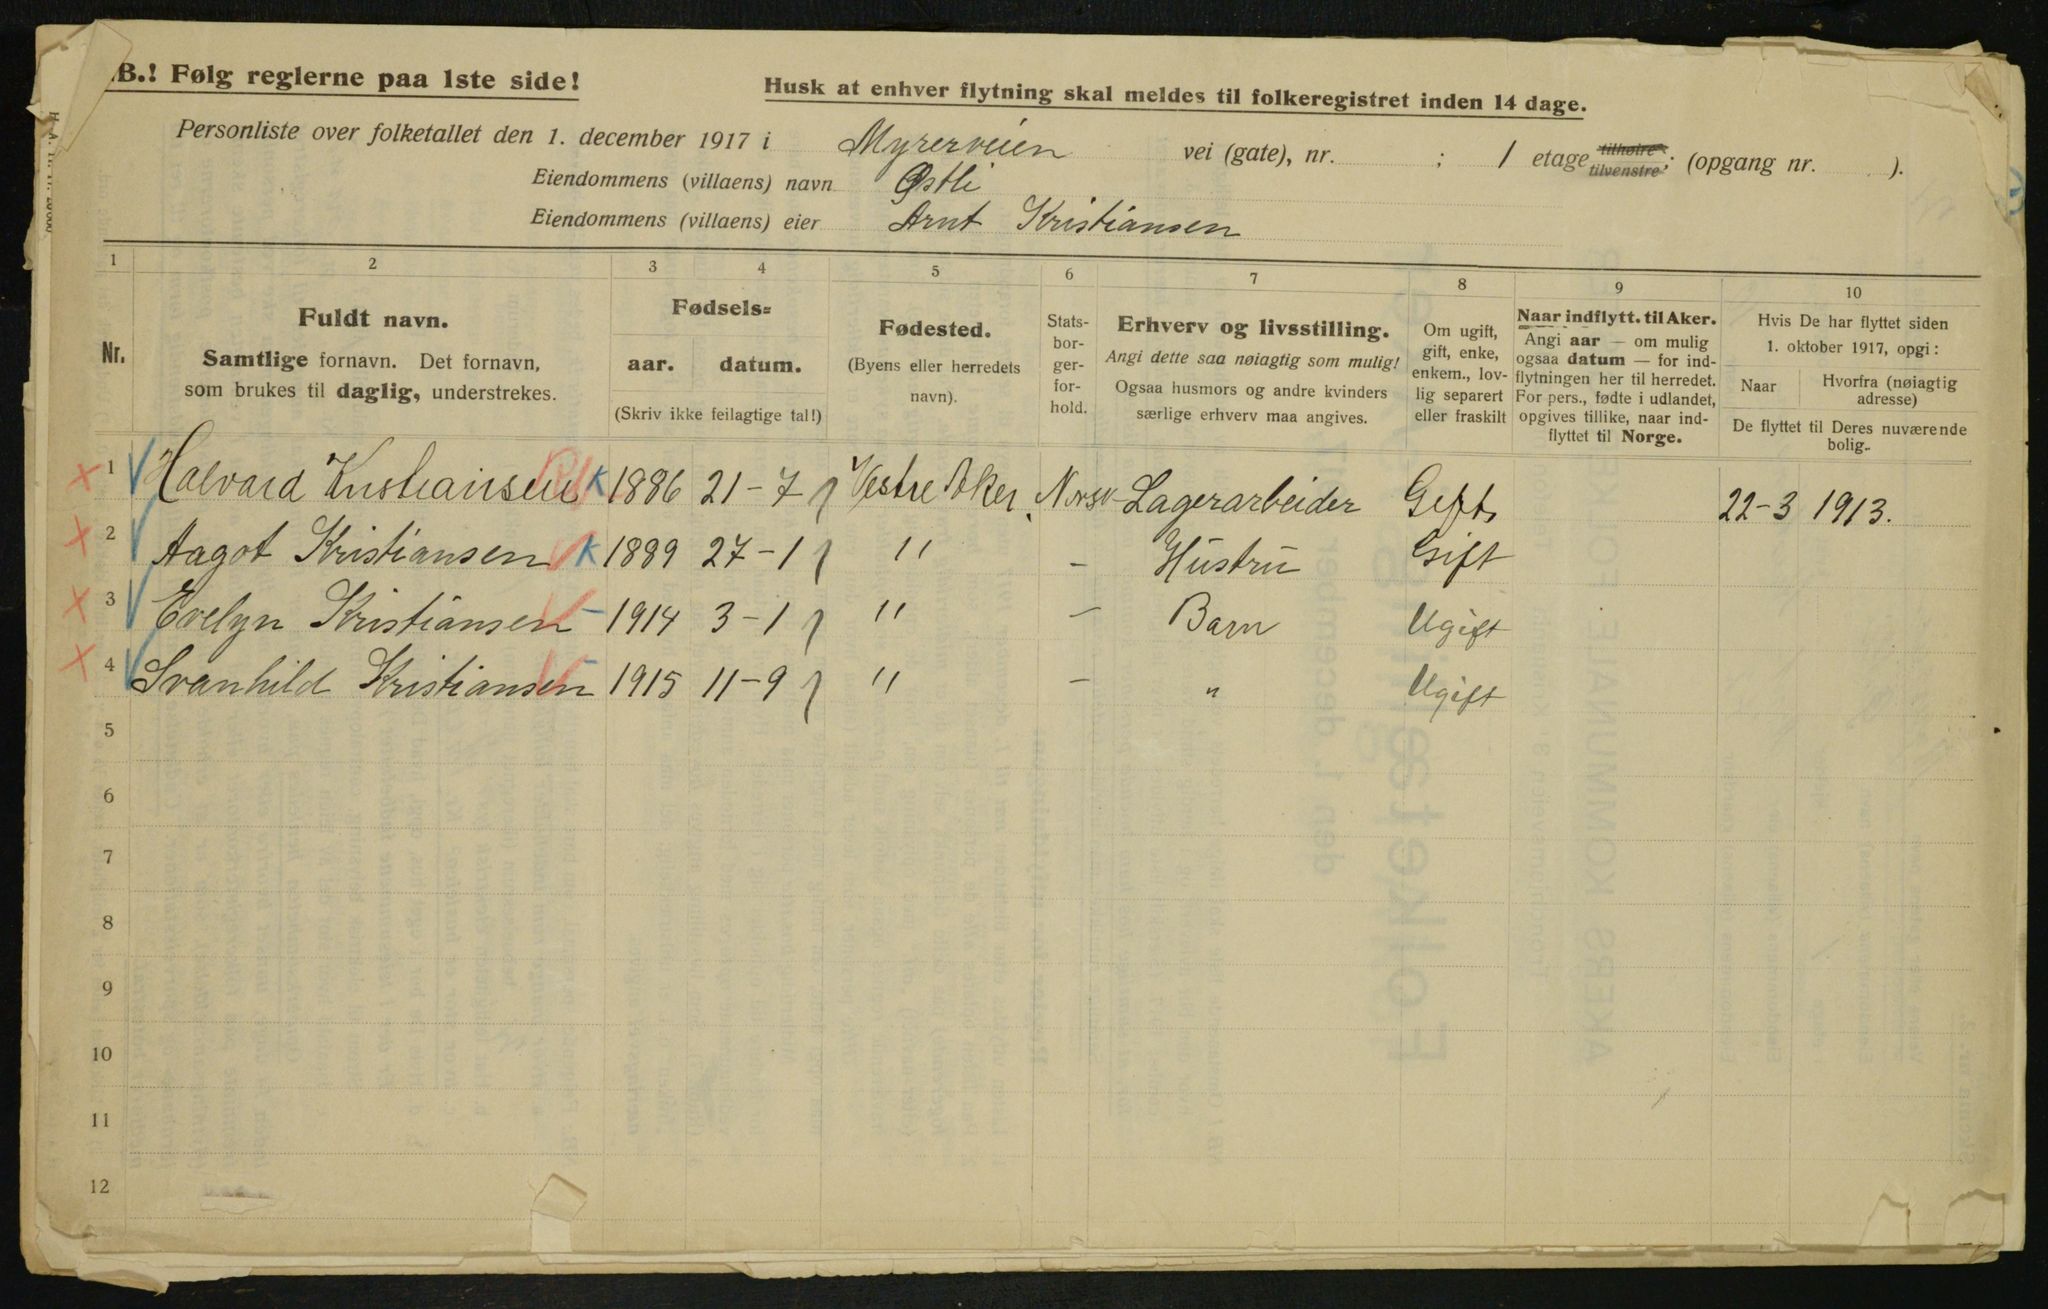 .B.! Følg reglerne paa 1ste side!
Husk at enhver flytning skal meldes til folkeregistret inden 14 dage.
Personliste over folketallet den 1. december 1917 i Myrerveien vei (gate), nr. ; 1 etage tilhøire tilvenstre; (opgang nr. ).
Eiendommens (villaens) navn Østli
Eiendommens (villaens) eier Arnt Kristiansen
1 2 3 4 5 6 7 8 9 10
Nr.
Fuldt navn.
Samtlige fornavn. Det fornavn,
som brukes til daglig, understrekes.
Fødsels=
aar. datum.
(Skriv ikke feilagtige tal!)
Fødested.
(Byens eller herredets
navn).
Stats-
bor-
ger-
for-
hold.
Erhverv og livsstilling.
Angi dette saa nøiagtig som mulig!
Ogsaa husmors og andre kvinders
særlige erhverv maa angives.
Om ugift,
gift, enke,
enkem., lov-
lig separert
eller fraskilt
Naar indflytt. til Aker.
Angi aar — om mulig
ogsaa datum — for ind-
flytningen her til herredet.
For pers., fødte i udlandet,
opgives tillike, naar ind-
flyttet til Norge.
Hvis De har flyttet siden
1. oktober 1917, opgi:
Naar Hvorfra (nøiagtig
adresse)
De flyttet til Deres nuværende
bolig.
1 Halvard Kristiansen K 1886 21-7 Vestre Aker Norsk Lagerarbeider Gift 22-3 1913.
2 Aagot Kristiansen K 1889 27-1 " - Hustru Gift
3 Evelyn Kristiansen - 1914 3-1 " - Barn Ugift
4 Svanhild Kristiansen - 1915 11-9 " - " Ugift
5
6
7
8
9
10
11
12